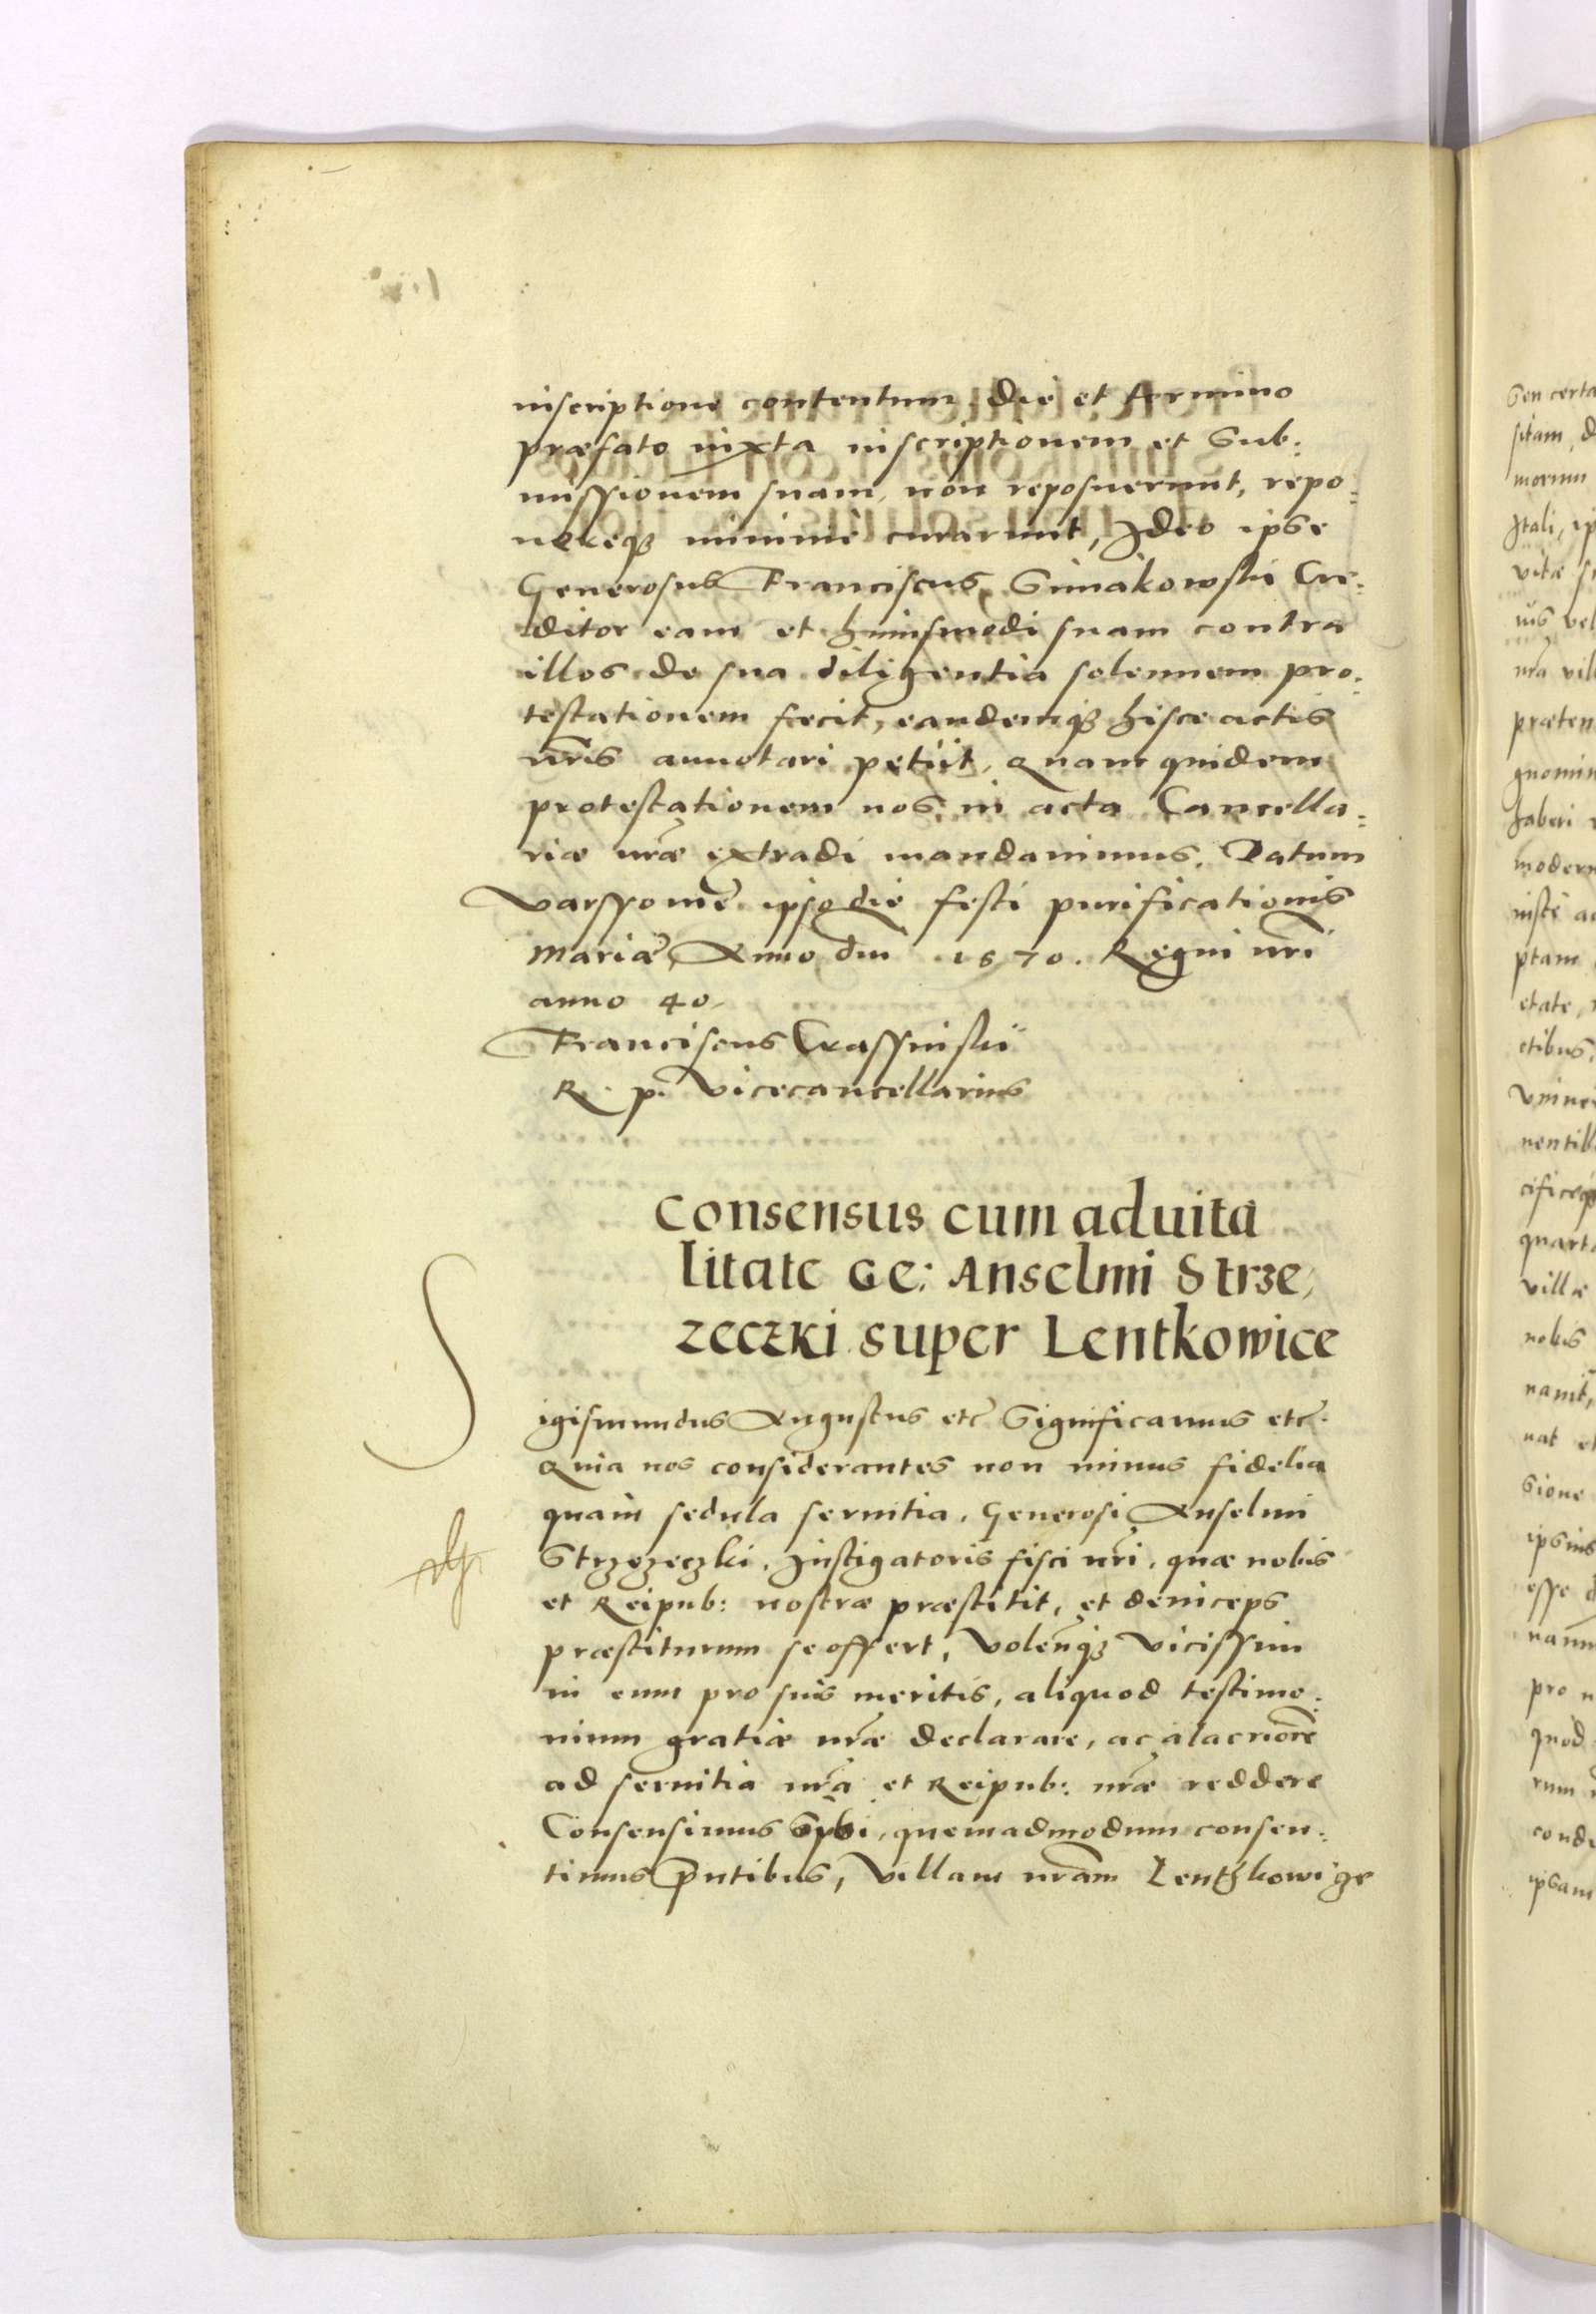 inscriptione contentum, die et termino
præfato iuxta inscriptionem et Sub:
missionem suam, non reposuerunt, repo:
nereqȝ minime curarunt, Ideo ipse
Generosus Franciscus Simakowski Cre:
ditor eam et huiusmodi suam contra
illos de sua diligentia solennem pro:
testationem fecit, eandemqȝ hisce actis
nr̃is annotari petiit, Quam quidem
protestationem nos in acta Cancella:
riæ nr̃æ extradi mandauimus. Datum
Varssouiæ ipso die festi purificationis
Mariæ, Anno dni 1570. Regni nr̃i
anno 40.
Franciscus Crassinskii
R. p. Vicecancellarius
Consensus cum aduita
litate Ge: Anselmi Strze,
zeczki super Lentkowice
Sigismundus Augustus etc̃ Significamus etc̃.
Quia nos considerantes non minus fidelia
quam sedula seruitia, Generosi Anselmi
Strzezeczki, Instigatoris fisci nr̃i, quæ nobis
et Reipub: nostræ præstitit, et deinceps
præstiturum se offert, Volen̄qȝ vicissim
in eum pro suis meritis, aliquod testimo:
nium gratiæ nr̃æ declarare, ac alacriorẽ
ad seruitia nr̃a et Reipub: nr̃æ reddere
Consensimus sibi, quemadmodum consen:
timus p̄ntibus, Villam nr̃am Lentzkowicze